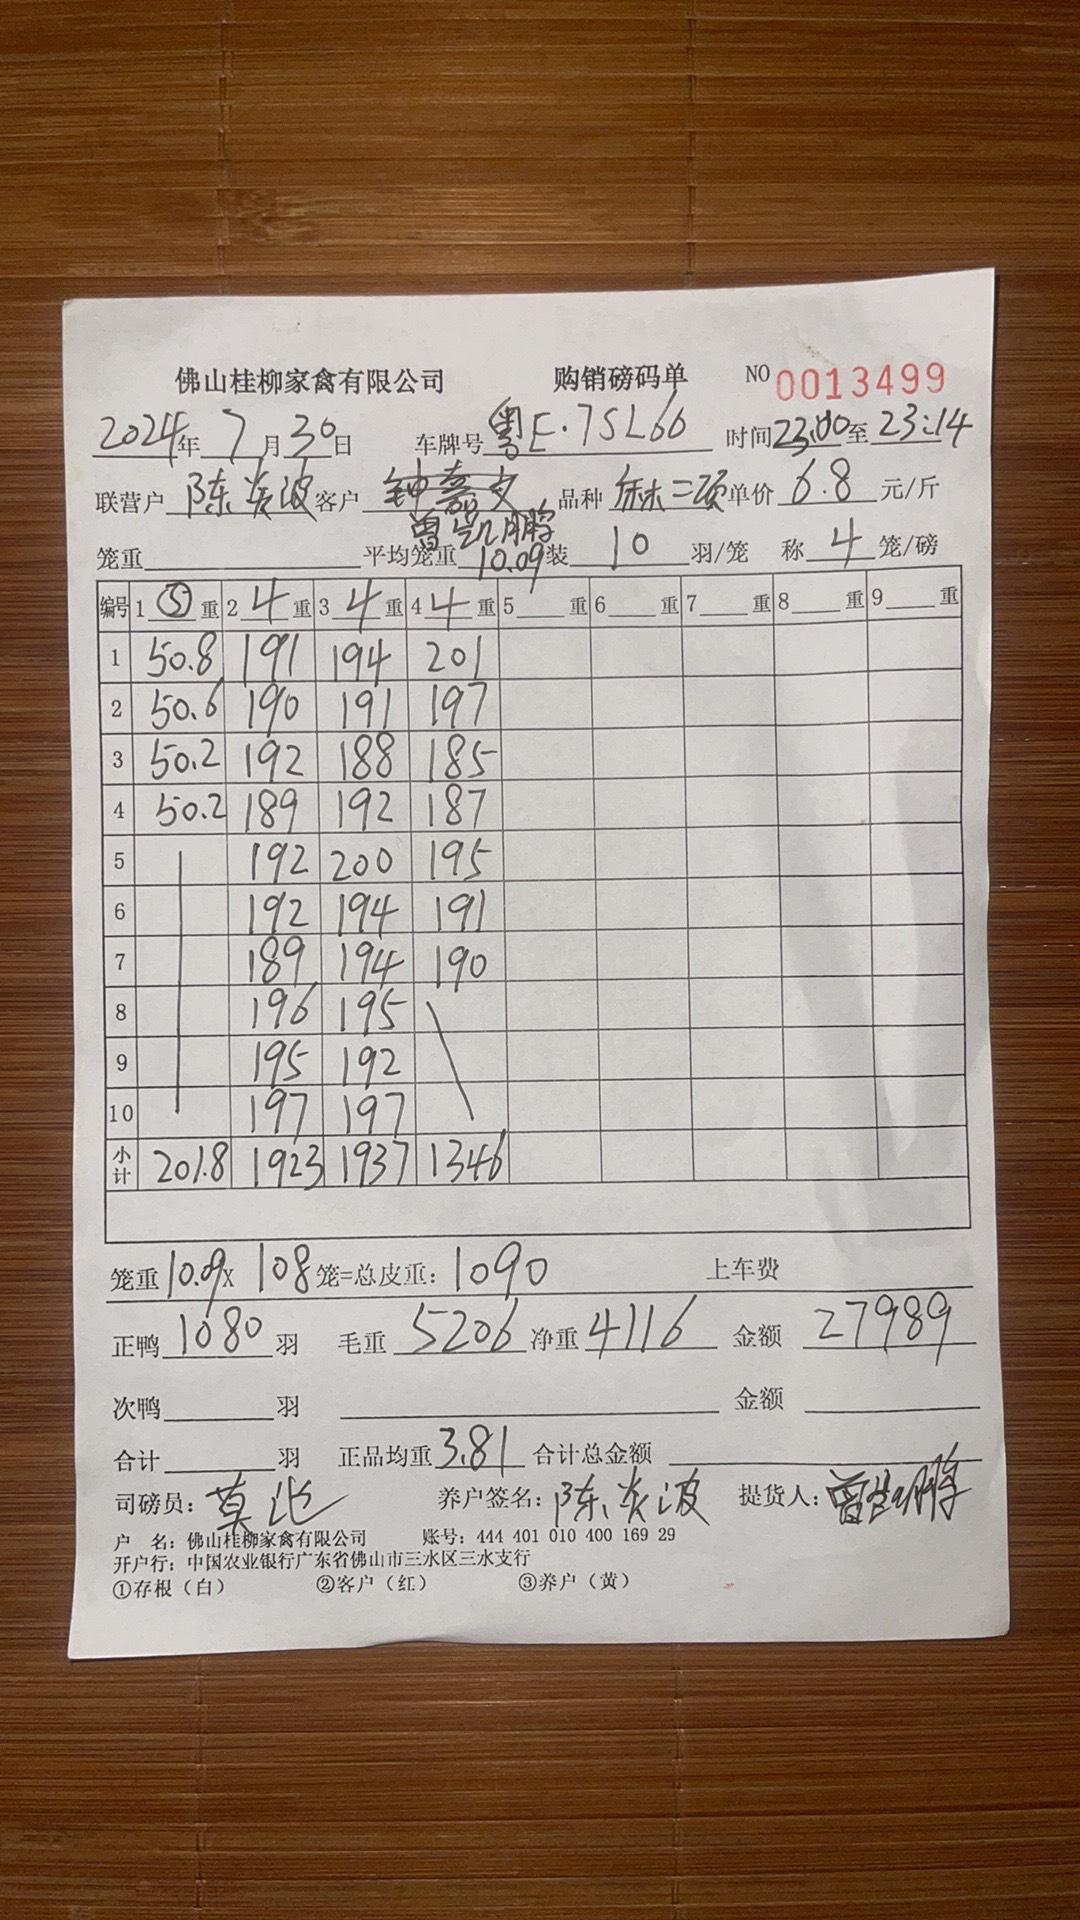 佛山桂柳家禽有限公司 购销磅码单 NO 0013499
2024年 7月30日 车牌号 粤E·7SL66 时间23:00至23:14
联营户 陈炎波 客户 品种 单价 6.8 元/斤
曾凯鹏
笼重 平均笼重 10.09 装 10 羽/笼 称 4 笼/磅
编号 1 ⑤ 重 2 4 重 3 4 重 4 4 重 5 重 6 重 7 重 8 重 9 重
1 50.8 191 194 201
2 50.6 190 191 197
3 50.2 192 188 185
4 50.2 189 192 187
5 192 200 195
6 192 194 191
7 189 194 190
8 196 195
9 195 192
10 197 197
小计 201.8 1923 1937 1346
笼重10.09X 108笼=总皮重：1090 上车费
正鸭 1080 羽 毛重 5206 净重 4116 金额 27989
次鸭 羽 金额
合计 羽 正品均重 3.81 合计总金额
司磅员：莫 养户签名：陈炎波 提货人：曾凯鹏
户 名：佛山桂柳家禽有限公司 账号：444 401 010 400 169 29
开户行：中国农业银行广东省佛山市三水区三水支行
①存根（白） ②客户（红） ③养户（黄）